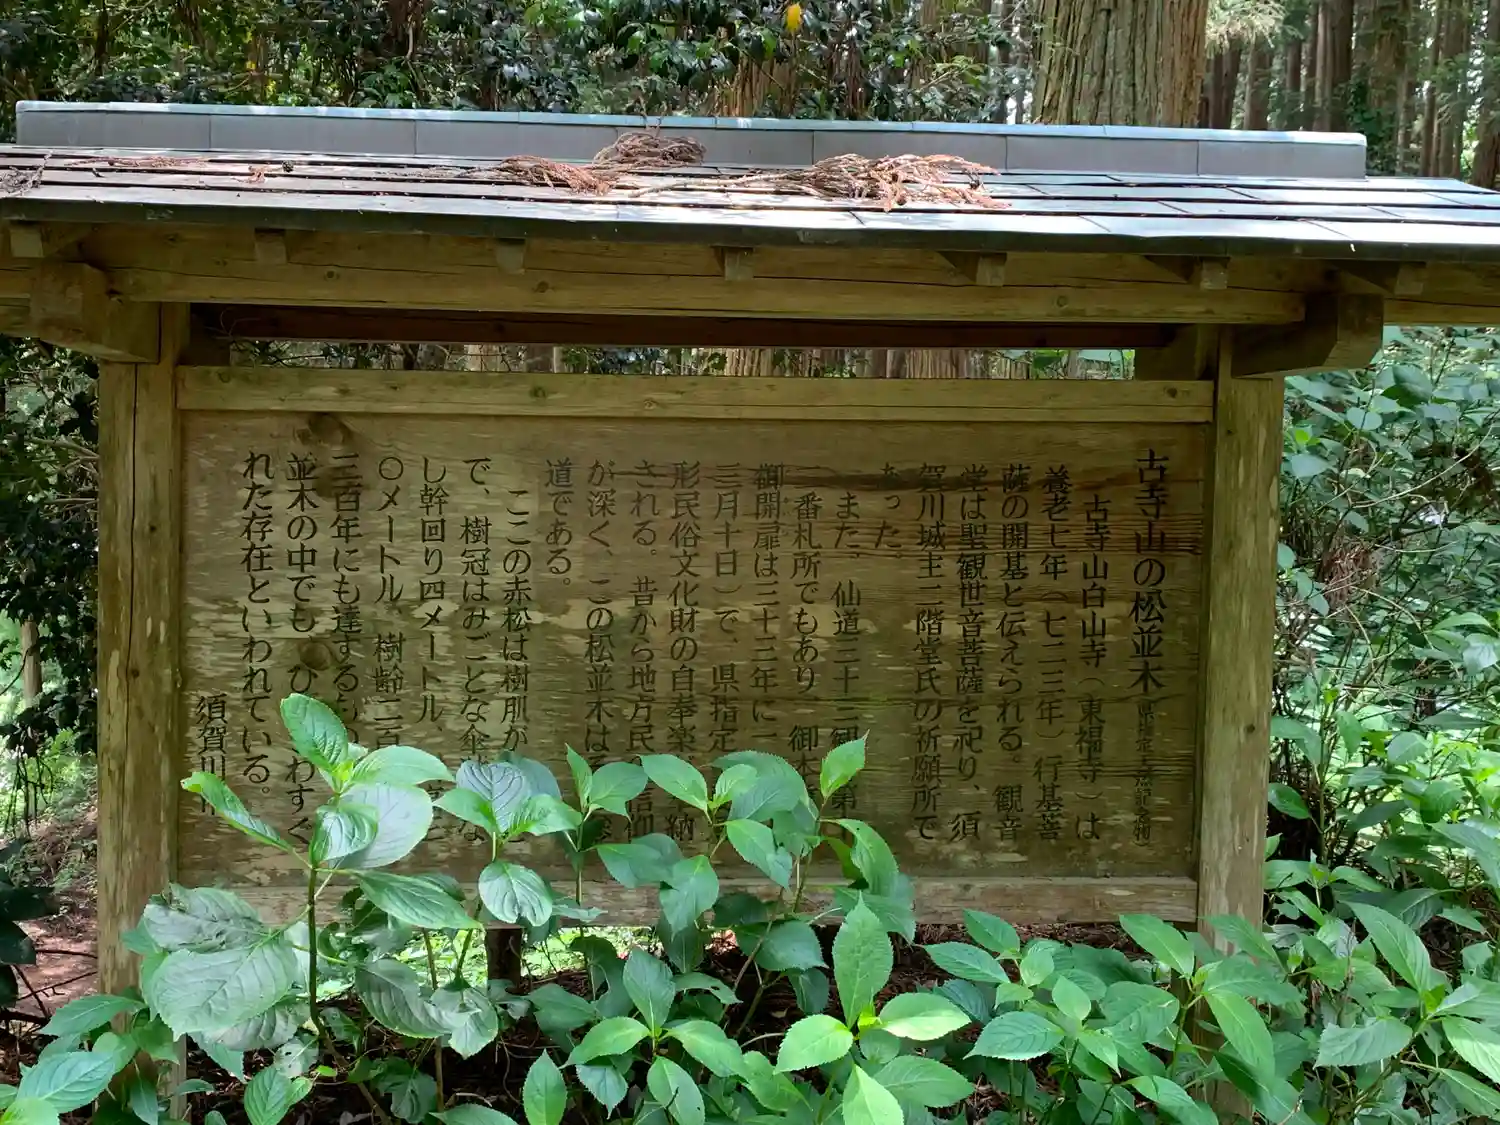 古寺山の松並木（県指定天然記念物）
古寺山白山寺（東福寺）は
養老七年（七二三年）行基菩
薩の開基と伝えられる。観音
堂は聖観世音菩薩を祀り、須
賀川城主二階堂氏の祈願所で
あった。
また、仙道三十三観 第
二番札所でもあり、御本
御開扉は三十三年に一
三月十日）で、県指定
形民俗文化財の自奉楽 納
される。昔から地方民 信仰
が深く、この松並木は
道である。
ここの赤松は樹肌が
で、樹冠はみごとな傘 な
し幹回り四メートル、
〇メートル、樹齢二百
三百年にも達するもの
並木の中でも、ひ わすぐ
れた存在といわれている。
須賀川市